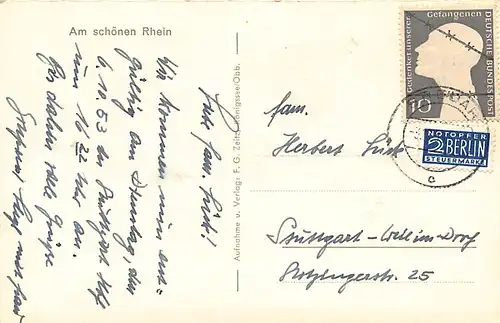 Am schönen Rhein
Liebe Fam. Lück!
Wir kommen nun end-
gültig am Dienstag, den
6.10.53 in Stuttgart Hbf
um 16 22 Uhr an.
Bis dahin viele Grüße
Aufnahme u. Verlag: F. G. Zeitz, Königssee/Obb.
Gedenket unserer Gefangenen
DEUTSCHE BUNDESPOST
10
NOTOPFER
2 BERLIN
STEUERMARKE
c
Fam.
Herbert Lück
Stuttgart-Weilimdorf
25